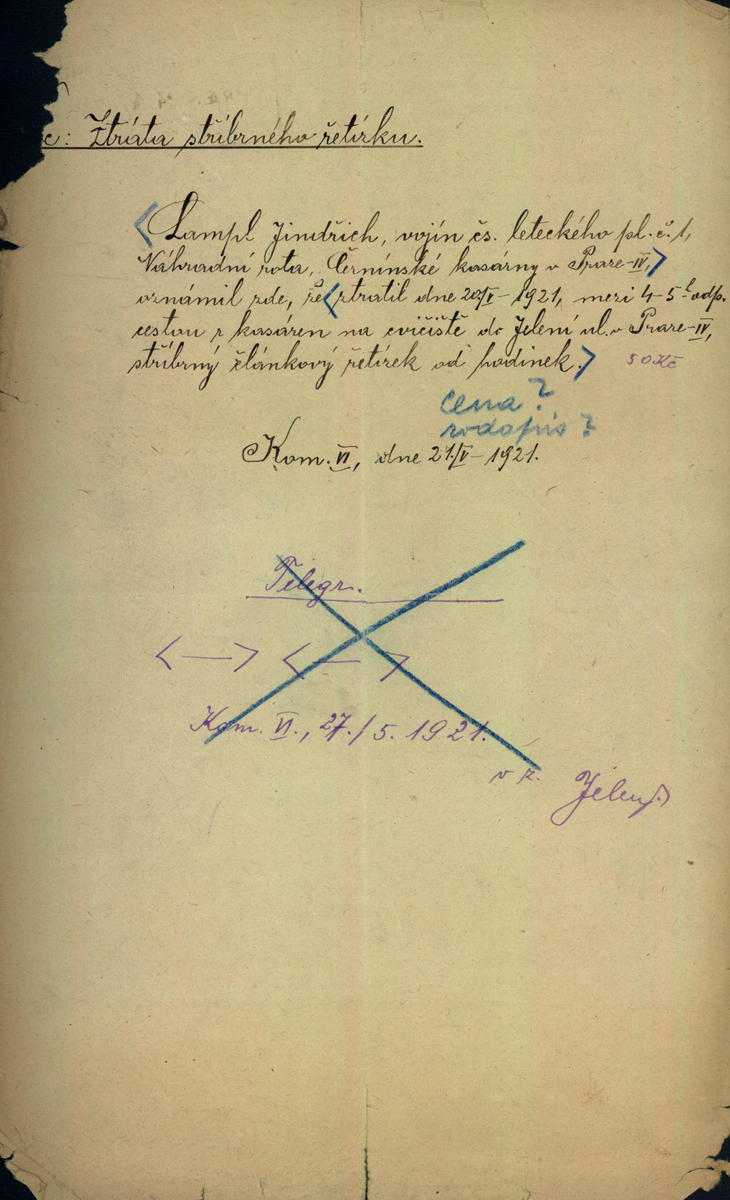 c: Ztráta stříbrného řetízku.
Lampl Jindřich, vojín čs. leteckého pl. č. 1,
Náhradní rota, Černínské kasárny v Praze-IV,
oznámil zde, že ztratil dne 20/V - 1921, mezi 4-5 h odp.
cestou z kasáren na cvičiště do Jelení ul. v Praze-IV,
stříbrný článkový řetízek od hodinek. 50 Kč
cena?
Kom. VI, dne 21./V - 1921.
Telegr.
< — > < — >
Kom. VI., 27./5. 1921.
v z.